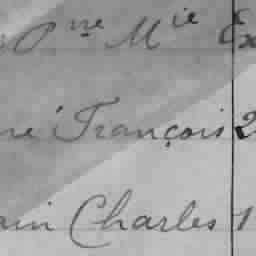 Pne Mie Ex
né François 2
ain Charles 1